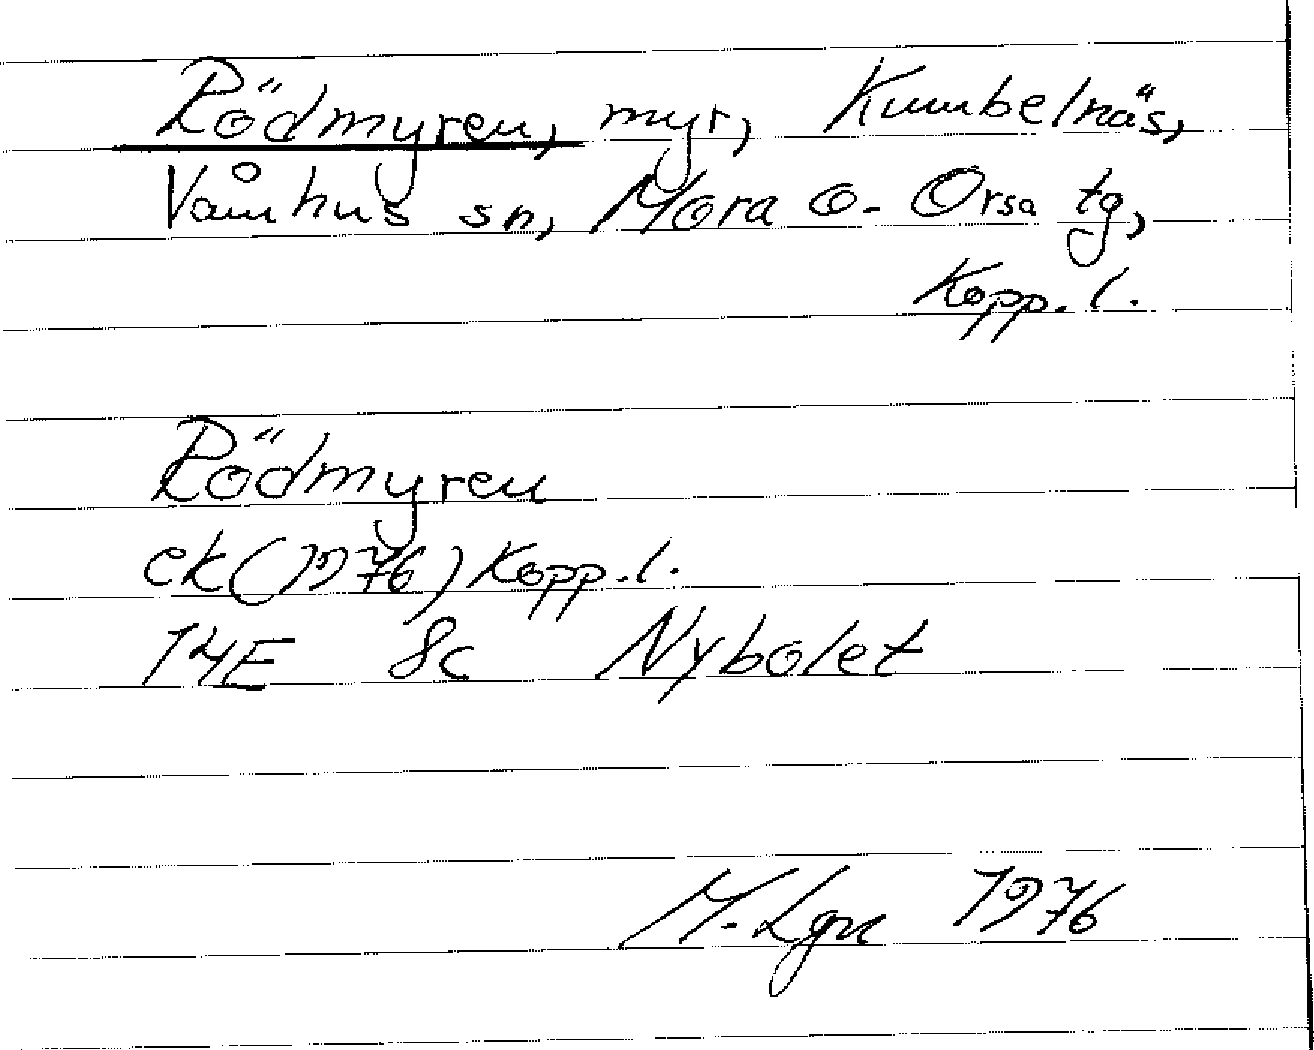 Rödmyren, myr, Kumbelnäs,
Våmhus sn, Mora o. Orsa tg,
Kopp. l.
Rödmyren
ek (1976) Kopp. l.
14E 8c Nybolet
M. Lgn 1976